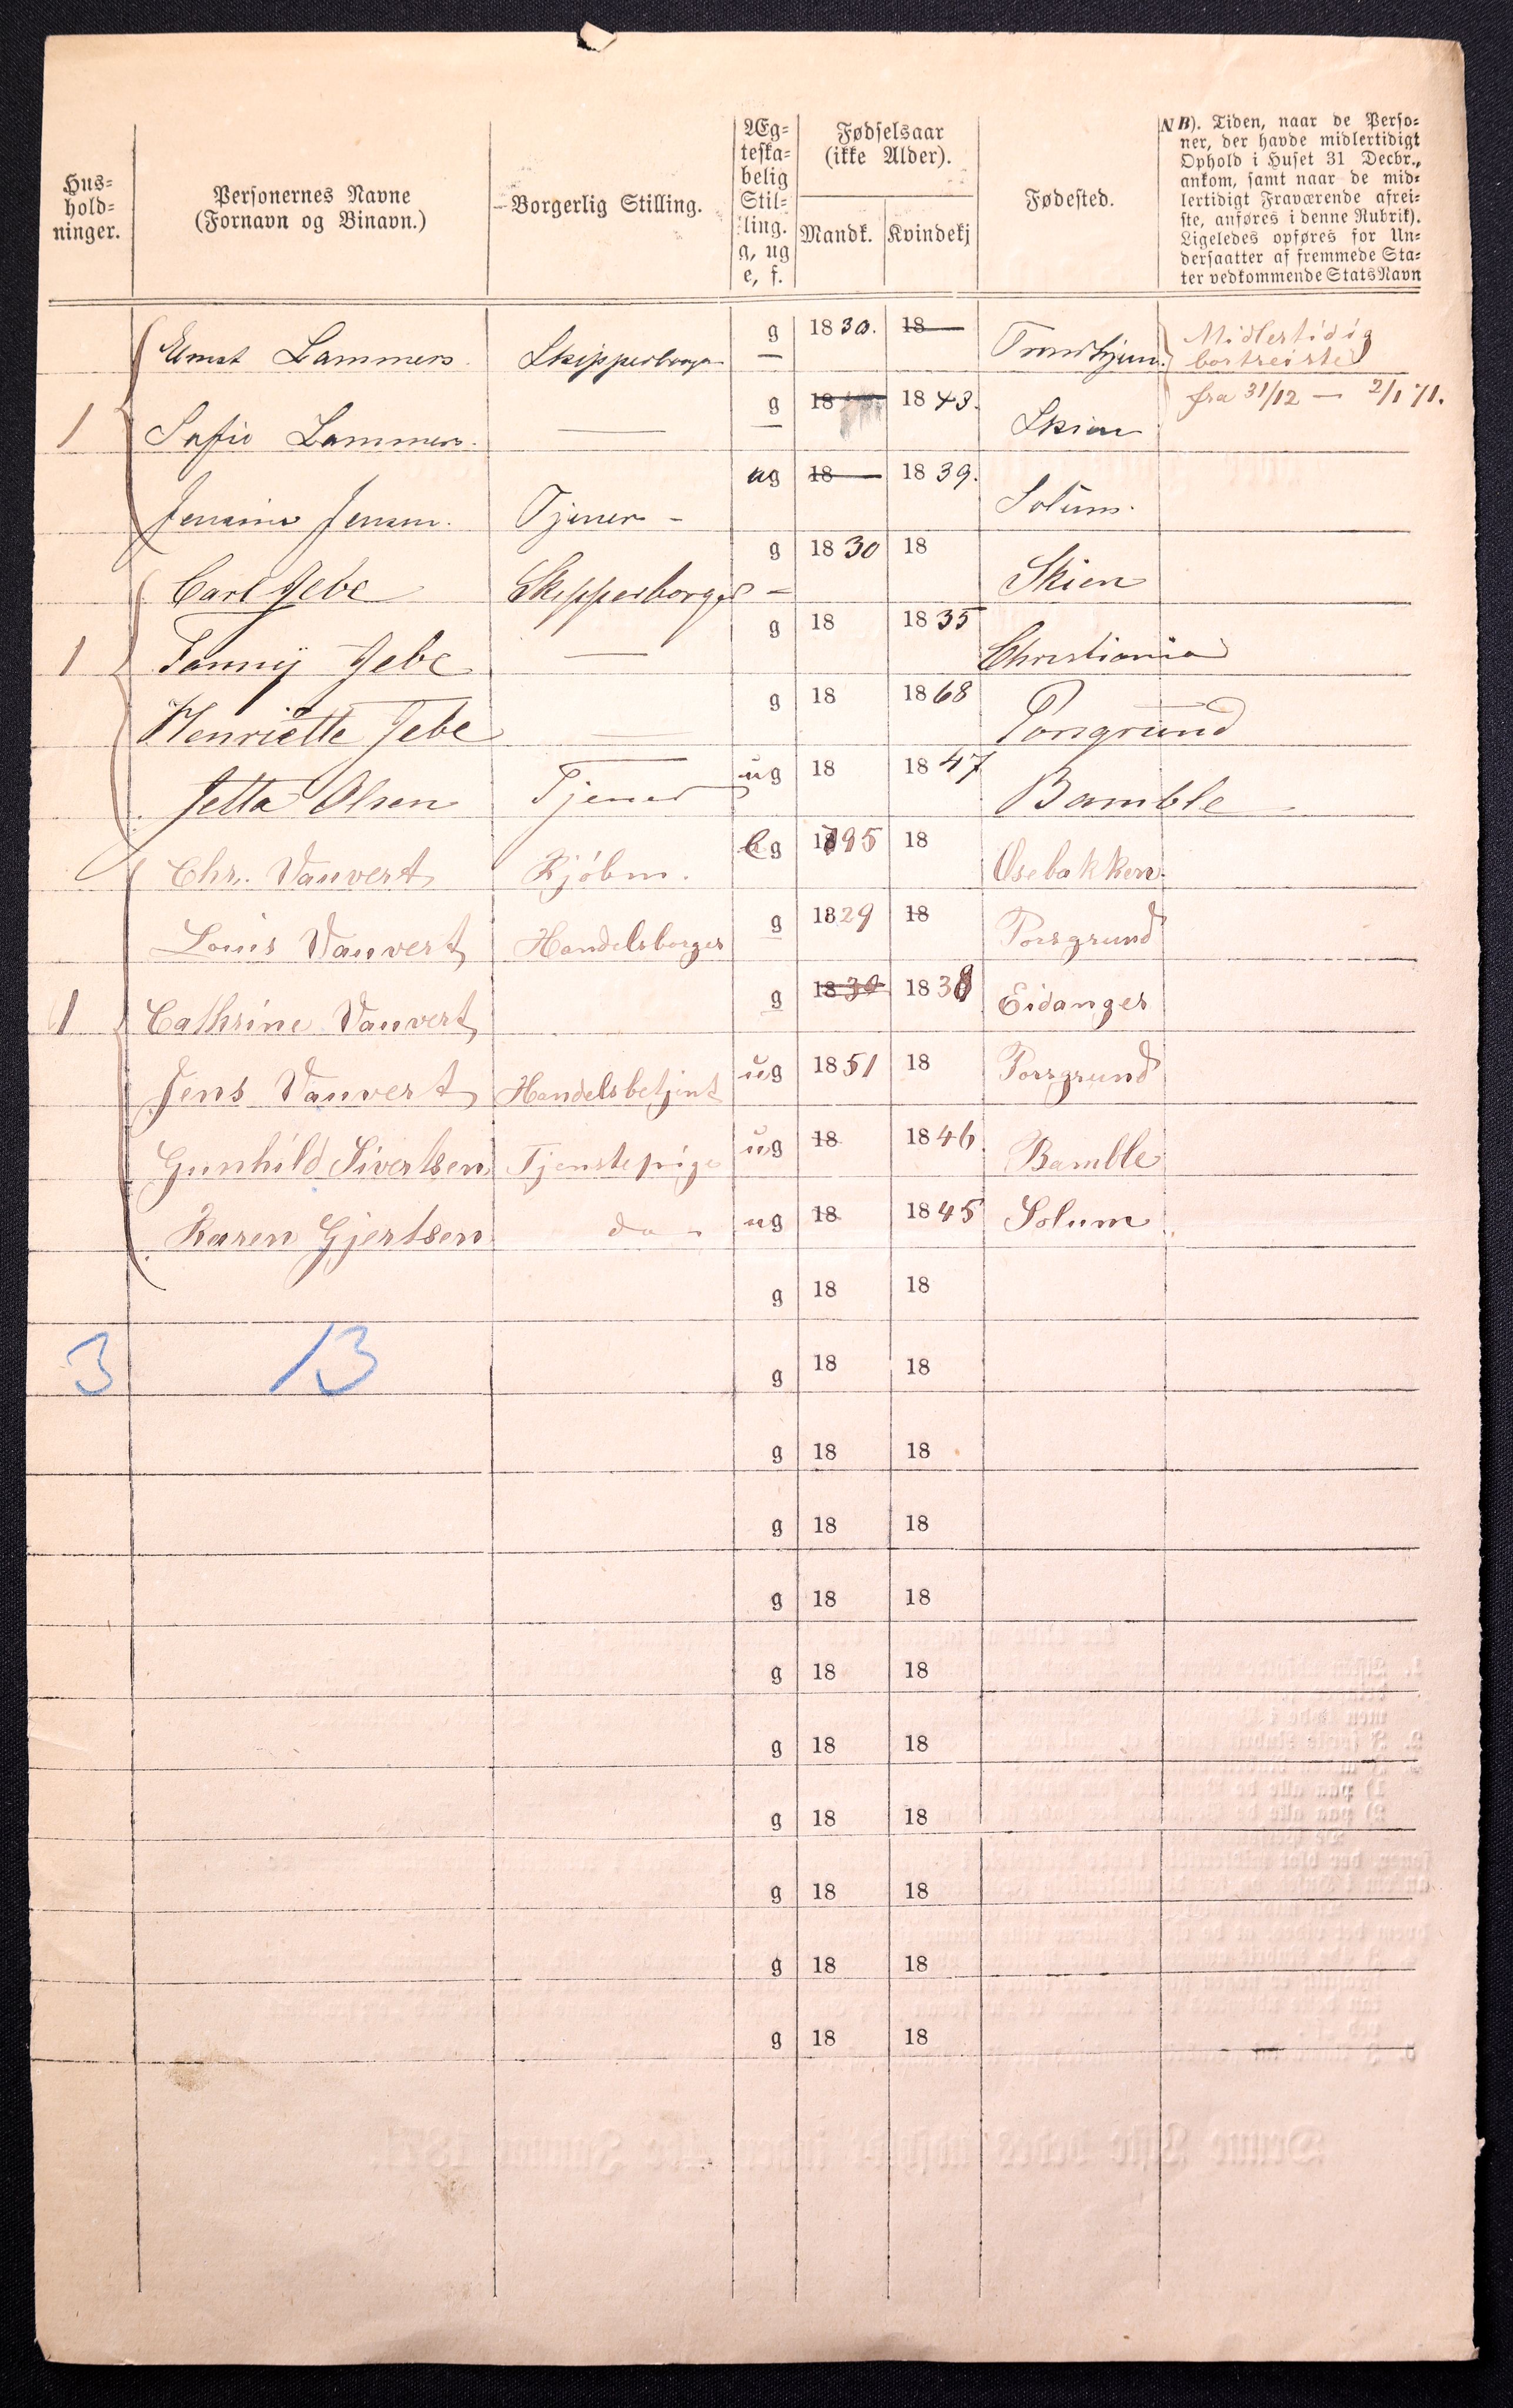 Hus-
hold-
ninger.
Personernes Navne
(Fornavn og Binavn.)
Borgerlig Stilling.
Æg-
teska-
belig
Stil-
ling.
g, ug
e, f.
Fødselsaar
(ikke Alder).
Mandk. Kvindekj
Fødested.
NB). Tiden, naar de Perso-
ner, der havde midlertidigt
Ophold i Huset 31 Decbr.,
ankom, samt naar de mid-
lertidigt Fraværende afrei-
ste, anføres i denne Rubrik).
Ligeledes opføres for Un-
dersaatter af fremmede Sta-
ter vedkommende Stats Navn
Ernst Lammers Skipperborger g 1830. 18 Trondhjem. Midlertidig
bortreiste
fra 31/12 — 2/1 71.
1 Sofie Lammers — g 18 1843. Skien
Jensine Jensen. Tjener - ug 18 1839. Solum.
Carl Jebe Skipperborger g 1830 18 Skien
1 Fanny Jebe — g 18 1835 Christiania
Henriette Jebe — g 18 1868 Porsgrund
Jetta Olsen Tjener ug 18 1847 Bamble
Chr. Vauvert Kjöbm. eg 1795 18 Osebakken
Louis Vauvert Handelsborger g 1829 18 Porsgrund
1 Cathrine Vauvert g 1830 1838 Eidanger
Jens Vauvert Handelsbetjent ug 1851 18 Porsgrund
Gunhild Sivertsen Tjenstepige ug 18 1846. Bamble
Karen Gjertsen do - ug 18 1845 Solum
g 18 18
3 13 g 18 18
g 18 18
g 18 18
g 18 18
g 18 18
g 18 18
g 18 18
g 18 18
g 18 18
g 18 18